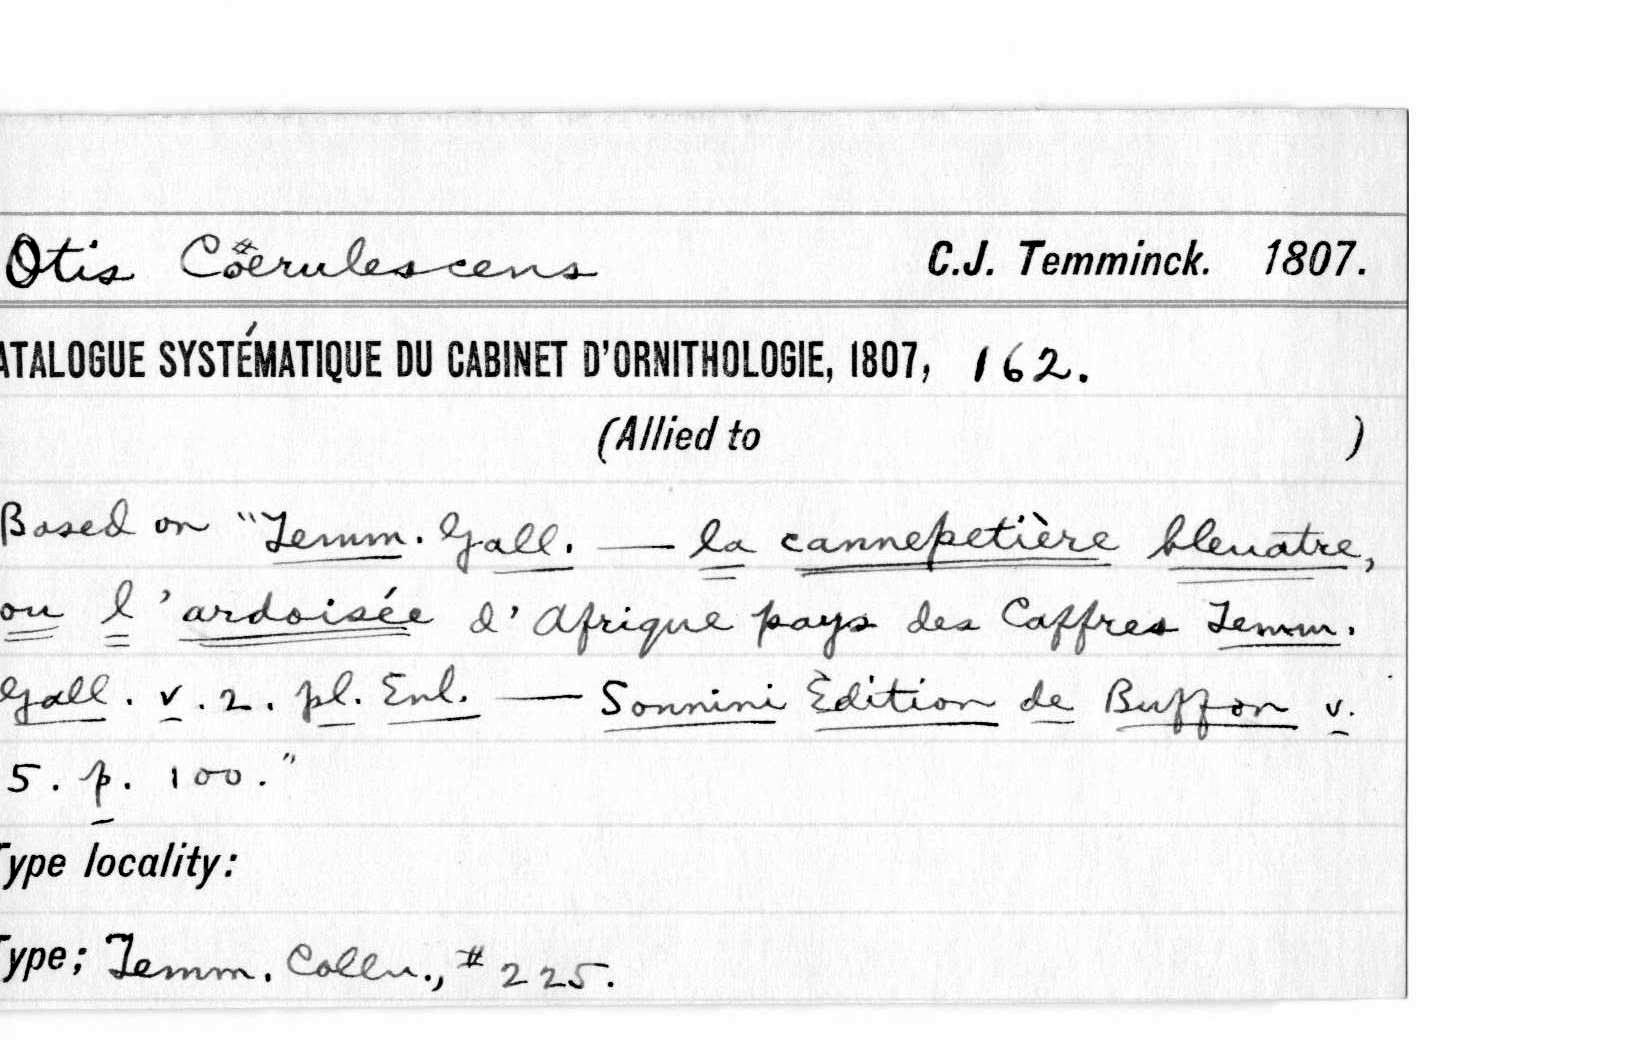 Otis Cöerulescens C.J. Temminck. 1807.
ATALOGUE SYSTÉMATIQUE DU CABINET D'ORNITHOLOGIE, 1807, 162.
(Allied to )
Based on "Temm. Gall. — la cannepetière bleuatre,
ou l'ardoisée d'Afrique pays des Caffres Temm.
Gall. v. 2. pl. Enl. — Sonnini Èdition de Buffon v.
5. p. 100."
Type locality:
Type; Temm. Colln., # 225.